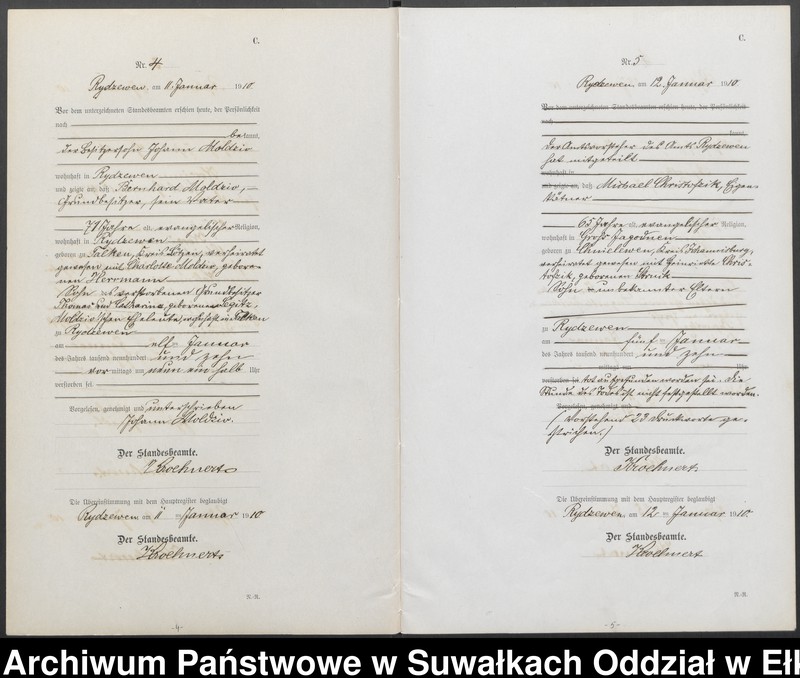 C.
Nr. 4
Rydzewen am 11. Januar 1910.
Vor dem unterzeichneten Standesbeamten erschien heute, der Persönlichkeit
nach
bekannt,
der Besitzersohn Johann Moldzio
wohnhaft in Rydzewen
und zeigte an, daß Bernhard Moldzio,
Grundbesitzer, sein Vater
71 Jahre alt, evangelischer Religion,
wohnhaft in Rydzewen
geboren zu Talken, Kreis Lötzen, verheiratet
gewesen mit Charlotte Moldzio, gebore-
nen Herrmann
Sohn des verstorbenen Grundbesitzer
Thomas und Catharina, geborenen
Moldzio'schen Eheleute, wohnhaft in Talken
zu Rydzewen
am elf Januar
des Jahres tausend neunhundert und zehn
vor mittags um neun ein halb Uhr
verstorben sei.
Vorgelesen, genehmigt und unterschrieben
Johann Moldzio.
Der Standesbeamte.
Kroehnert
Die Übereinstimmung mit dem Hauptregister beglaubigt
Rydzewen am 11 ten Januar 1910
Der Standesbeamte.
Kroehnert
R.-R.
-4-
C.
Nr. 5
Rydzewen am 12. Januar 1910
Vor dem unterzeichneten Standesbeamten erschien heute, der Persönlichkeit
nach
kannt,
Der Amtsvorsteher des Amts Rydzewen
hat mitgeteilt
wohnhaft in
und zeigte an, daß Michael Christofzik, Eigen-
kätner
65 Jahre alt, evangelischer Religion,
wohnhaft in Groß Jagodnen
geboren zu Chmielewen, Kreis Johannisburg,
verheiratet gewesen mit Heinriette Chris-
tofzik, geborenen
Sohn unbekannter Eltern
zu Rydzewen
am fünf Januar
des Jahres tausend neunhundert und zehn
mittags um Uhr
verstorben sei tot aufgefunden worden sei. Die
Stunde des Todes ist nicht festgestellt worden.
Vorgelesen, genehmigt und
(Vorstehend 23 Druckworte ge-
strichen.)
Der Standesbeamte.
Kroehnert
Die Übereinstimmung mit dem Hauptregister beglaubigt
Rydzewen am 12 ten Januar 1910.
Der Standesbeamte.
Kroehnert
R.-R.
-5-
Archiwum Państwowe w Suwałkach Oddział w Ełk